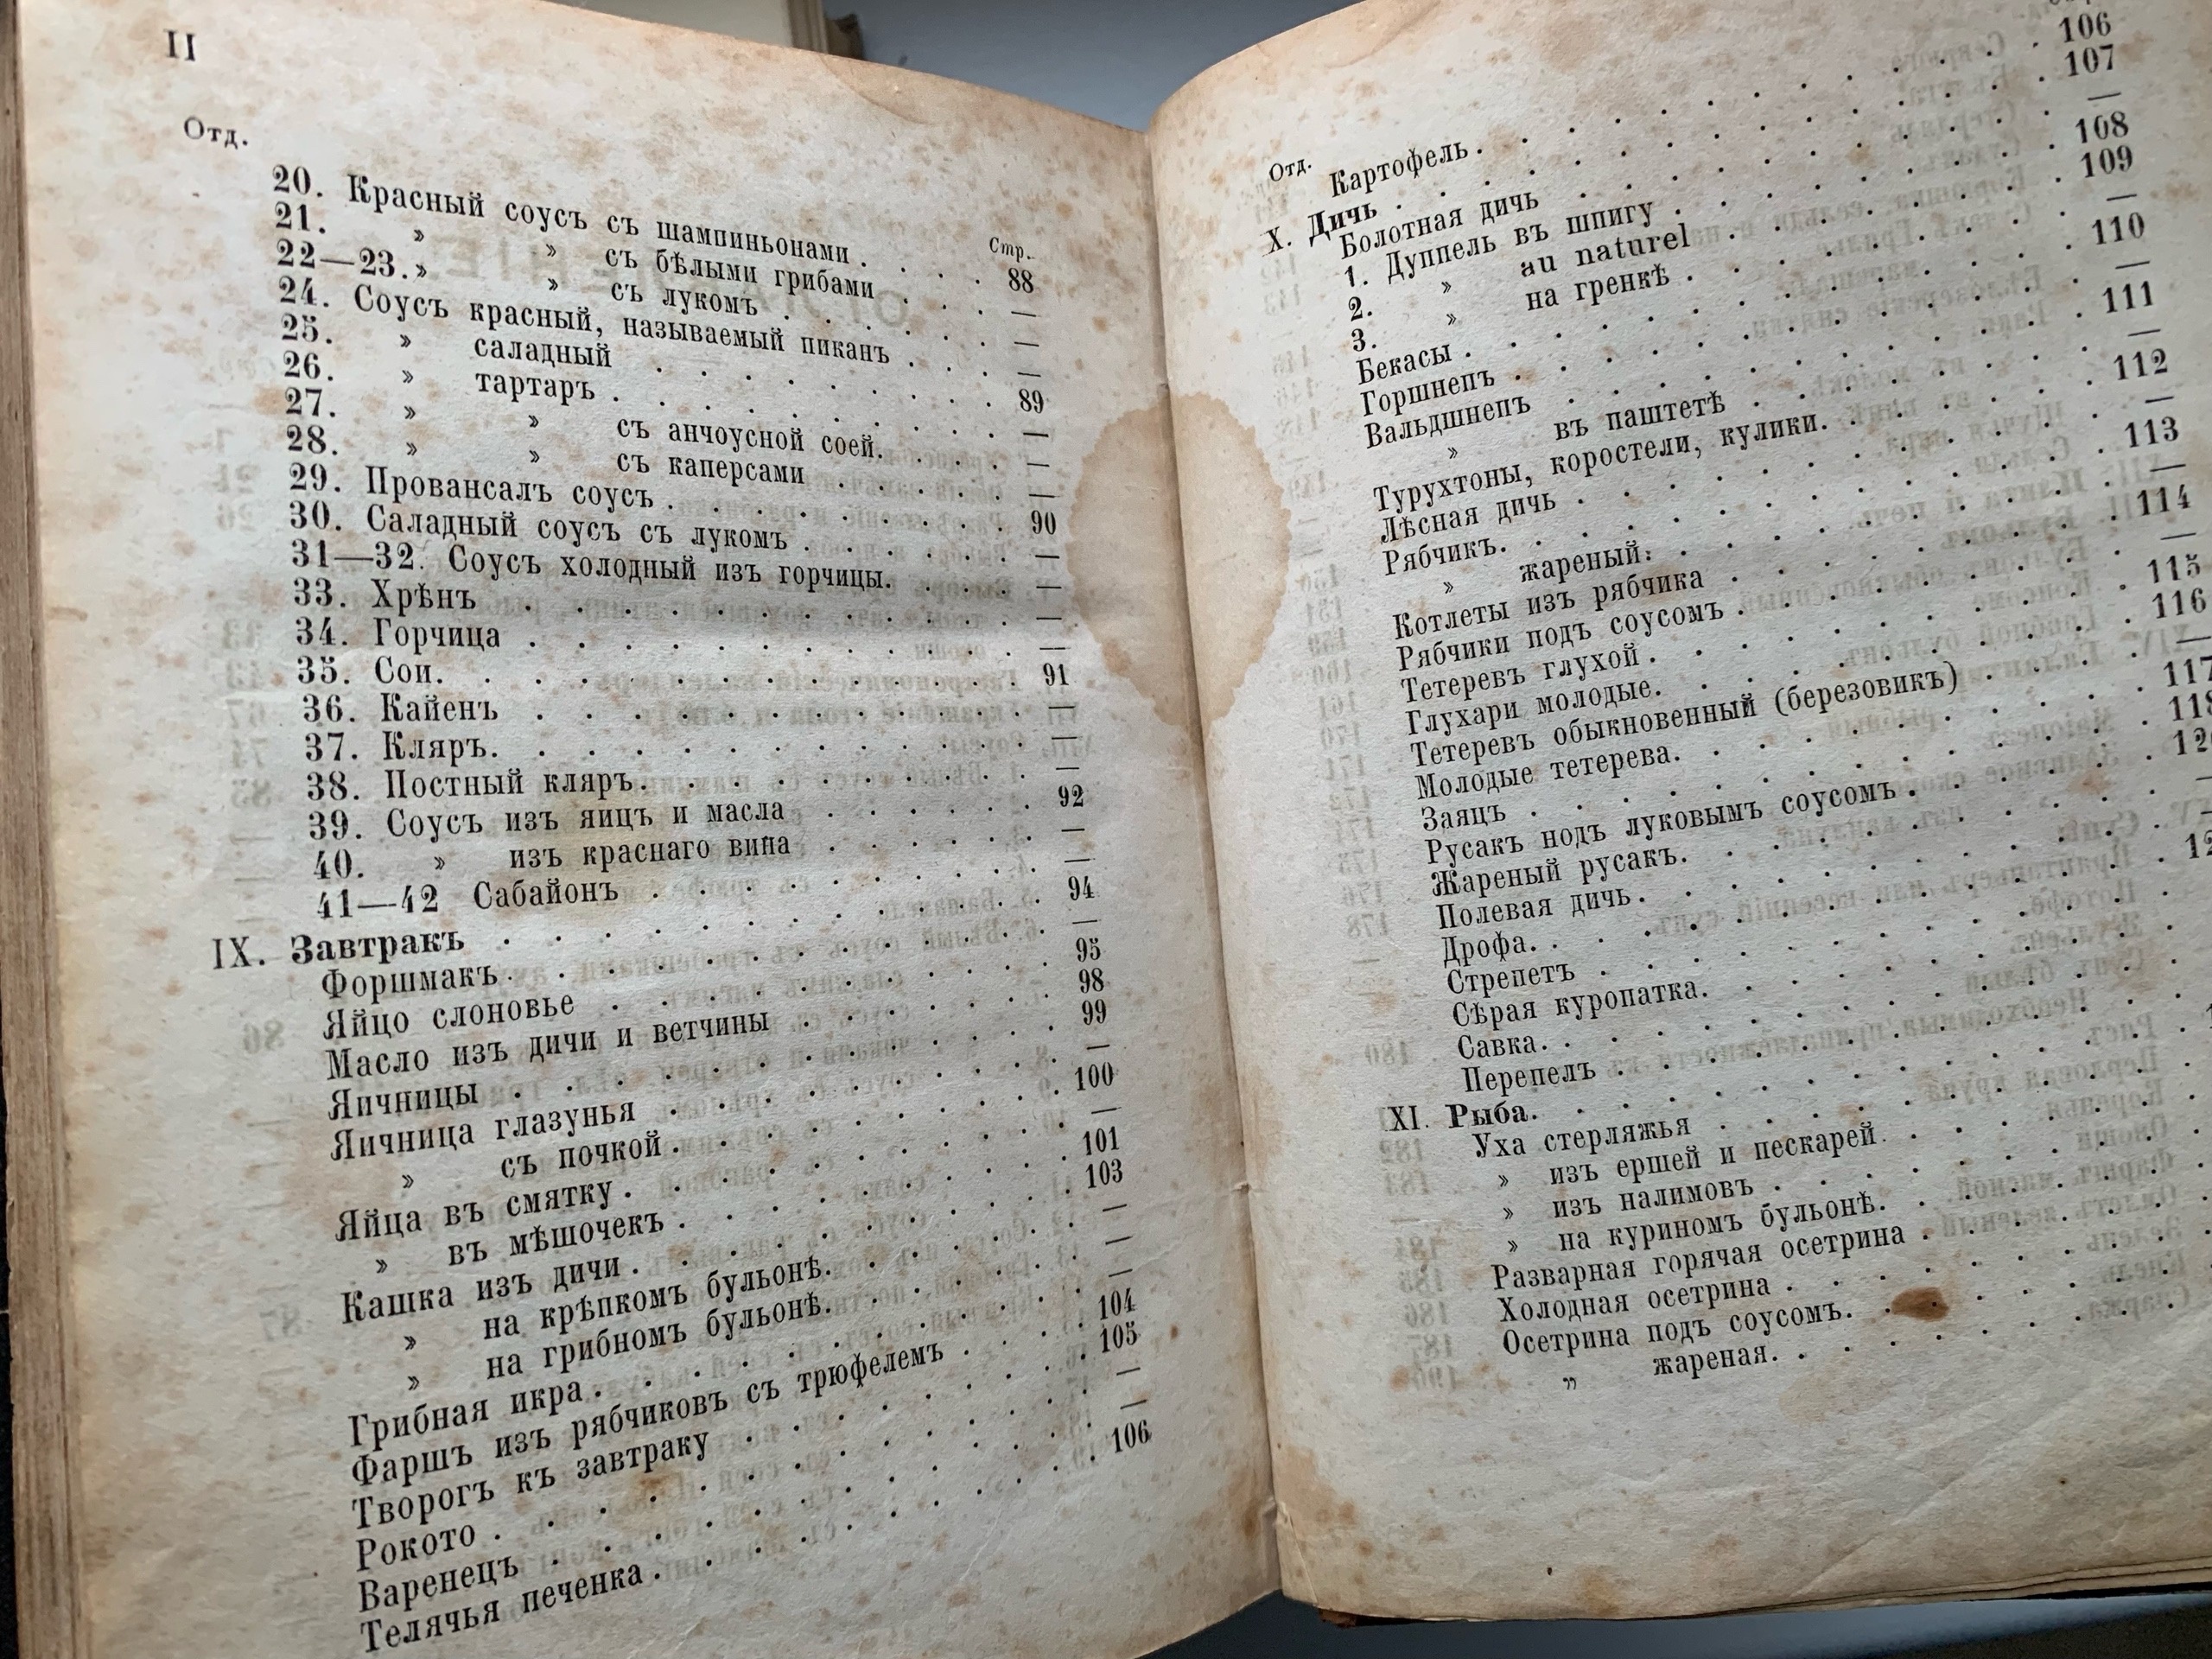 II
Отд.
Стр.
20. Красный соусъ съ шампиньонами . . . . 88
21. » » съ бѣлыми грибами . . . —
22—23. » » съ лукомъ . . . . . —
24. Соусъ красный, называемый пиканъ . . . —
25. » саладный . . . . . . . 89
26. » тартаръ . . . . . . . . —
27. » » съ анчоусной соей. . . . —
28. » » съ каперсами . . . . . —
29. Провансалъ соусъ . . . . . . . . 90
30. Саладный соусъ съ лукомъ . . . . . . —
31—32. Соусъ холодный изъ горчицы. . . . . —
33. Хрѣнъ . . . . . . . . . . —
34. Горчица . . . . . . . . . . —
35. Сои. . . . . . . . . . . . 91
36. Кайенъ . . . . . . . . . . —
37. Кляръ. . . . . . . . . . . —
38. Постный кляръ. . . . . . . . . —
39. Соусъ изъ яицъ и масла . . . . . . 92
40. » изъ краснаго вина . . . . . . —
41—42 Сабайонъ . . . . . . . . . —
IX. Завтракъ . . . . . . . . . . . 94
Форшмакъ . . . . . . . . . . . —
Яйцо слоновье . . . . . . . . . 95
Масло изъ дичи и ветчины . . . . . . 98
Яичницы . . . . . . . . . . . 99
Яичница глазунья . . . . . . . . —
» съ почкой . . . . . . . . 100
Яйца въ смятку . . . . . . . . . —
» въ мѣшочекъ . . . . . . . . 101
Кашка изъ дичи . . . . . . . . . 103
» на крѣпкомъ бульонѣ. . . . . . —
» на грибномъ бульонѣ. . . . . . —
Грибная икра . . . . . . . . . . —
Фаршъ изъ рябчиковъ съ трюфелемъ . . . 104
Творогъ къ завтраку . . . . . . . 105
Рокото . . . . . . . . . . . —
Варенецъ . . . . . . . . . . . —
Телячья печенка . . . . . . . . . 106
Отд.
Картофель . . . . . . . . . . . 106
X. Дичь . . . . . . . . . . . . 107
Болотная дичь . . . . . . . . . —
1. Дуппель въ шпигу . . . . . . . . 108
2. » au naturel . . . . . . . . 109
3. » на гренкѣ . . . . . . . . —
Бекасы . . . . . . . . . . . 110
Горшнепъ . . . . . . . . . . . —
Вальдшнепъ . . . . . . . . . . 111
» въ паштетѣ . . . . . . . —
Турухтоны, коростели, кулики. . . . . . 112
Лѣсная дичь . . . . . . . . . . —
Рябчикъ. . . . . . . . . . . . 113
» жареный. . . . . . . . . —
Котлеты изъ рябчика . . . . . . . . 114
Рябчики подъ соусомъ . . . . . . . —
Тетеревъ глухой . . . . . . . . . 115
Глухари молодые. . . . . . . . . 116
Тетеревъ обыкновенный (березовикъ) . . . —
Молодые тетерева. . . . . . . . .
Заяцъ . . . . . . . . . . .
Русакъ нодъ луковымъ соусомъ . . . . .
Жареный русакъ. . . . . . . . .
Полевая дичь. . . . . . . . . .
Дрофа. . . . . . . . . . . .
Стрепетъ . . . . . . . . . . .
Сѣрая куропатка. . . . . . . . .
Савка. . . . . . . . . . . .
Перепелъ . . . . . . . . . . .
XI. Рыба. . . . . . . . . . . .
Уха стерляжья . . . . . . . . .
» изъ ершей и пескарей . . . . . .
» изъ налимовъ . . . . . . . .
» на куриномъ бульонѣ. . . . . . .
Разварная горячая осетрина . . . . . .
Холодная осетрина . . . . . . . .
Осетрина подъ соусомъ. . . . . . .
„ жареная. . . . . . . . .